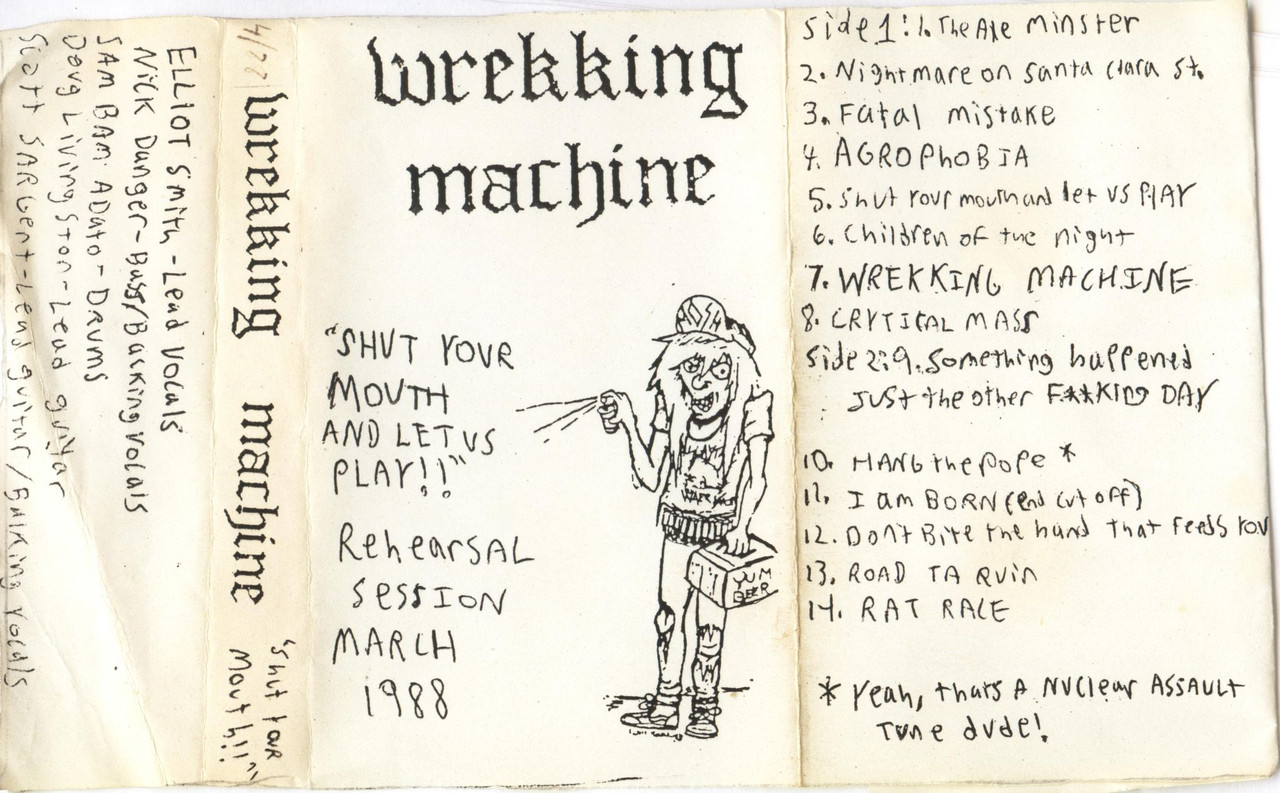 ELLIOT Smith - Lead Vocals
Nick Danger - Bass/Backing vocals
SAM BAM ADATO - DRUMS
Doug Livingston - Lead guitar
Scott SARgent - Lead guitar/Backing vocals
4/22
wrekking machine
"Shut your
Mouth!!"
wrekking
machine
"SHUT YOUR
MOUTH
AND LET US
PLAY!!"
Rehearsal
Session
MARCH
1988
MOSH
YUM
BEER
Side 1: 1. The Axe Minster
2. Nightmare on Santa Clara St.
3. Fatal mistake
4. AGROPHOBIA
5. Shut your mouth and let us PlAY
6. Children of the night
7. WREKKING MACHINE
8. CRYTICAL MASS
Side 2: 9. Something happened
Just the other F**KING DAY
10. HANG the pope *
11. I am BORN (end cut off)
12. Don't Bite the hand that feeds you
13. ROAD TA RUIN
14. RAT RACE
* Yeah, thats A NUClear ASSAULT
Tune dude!